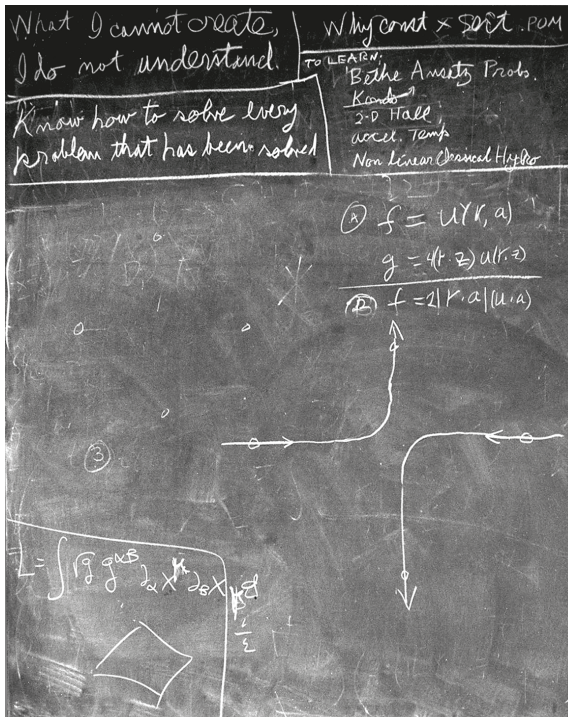 What I cannot create,
I do not understand.
Know how to solve every
problem that has been solved
Why const × sort .PON
TO LEARN:
Bethe Ansatz Probs.
Kondo
2-D Hall
accel. Temp
Non Linear Classical Hydro
Ⓐ f = u(r, a)
g = 4(r·z) u(r·z)
Ⓑ f = 2|r·a|(u·a)
③
L = ∫ √g g^αβ ∂α X ∂β X